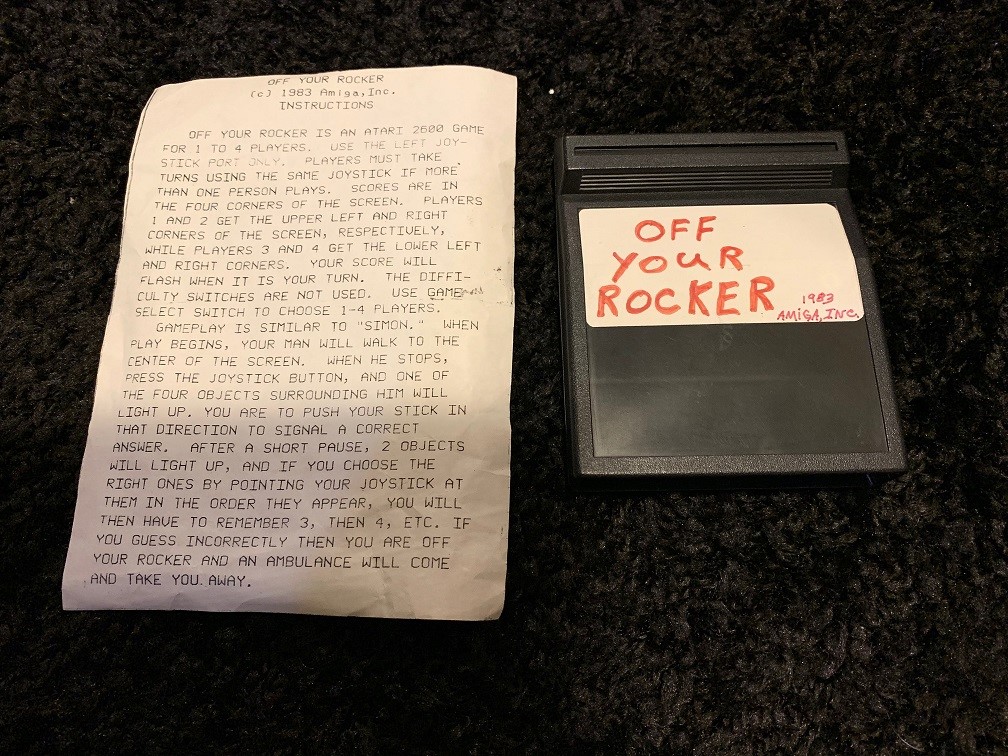 OFF YOUR ROCKER
(c) 1983 Amiga,Inc.
INSTRUCTIONS
OFF YOUR ROCKER IS AN ATARI 2600 GAME
FOR 1 TO 4 PLAYERS. USE THE LEFT JOY-
STICK PORT ONLY. PLAYERS MUST TAKE
TURNS USING THE SAME JOYSTICK IF MORE
THAN ONE PERSON PLAYS. SCORES ARE IN
THE FOUR CORNERS OF THE SCREEN. PLAYERS
1 AND 2 GET THE UPPER LEFT AND RIGHT
CORNERS OF THE SCREEN, RESPECTIVELY,
WHILE PLAYERS 3 AND 4 GET THE LOWER LEFT
AND RIGHT CORNERS. YOUR SCORE WILL
FLASH WHEN IT IS YOUR TURN. THE DIFFI-
CULTY SWITCHES ARE NOT USED. USE GAME
SELECT SWITCH TO CHOOSE 1-4 PLAYERS.
GAMEPLAY IS SIMILAR TO "SIMON." WHEN
PLAY BEGINS, YOUR MAN WILL WALK TO THE
CENTER OF THE SCREEN. WHEN HE STOPS,
PRESS THE JOYSTICK BUTTON, AND ONE OF
THE FOUR OBJECTS SURROUNDING HIM WILL
LIGHT UP. YOU ARE TO PUSH YOUR STICK IN
THAT DIRECTION TO SIGNAL A CORRECT
ANSWER. AFTER A SHORT PAUSE, 2 OBJECTS
WILL LIGHT UP, AND IF YOU CHOOSE THE
RIGHT ONES BY POINTING YOUR JOYSTICK AT
THEM IN THE ORDER THEY APPEAR, YOU WILL
THEN HAVE TO REMEMBER 3, THEN 4, ETC. IF
YOU GUESS INCORRECTLY THEN YOU ARE OFF
YOUR ROCKER AND AN AMBULANCE WILL COME
AND TAKE YOU AWAY.
OFF
YOUR
ROCKER
1983
AMIGA, INC.